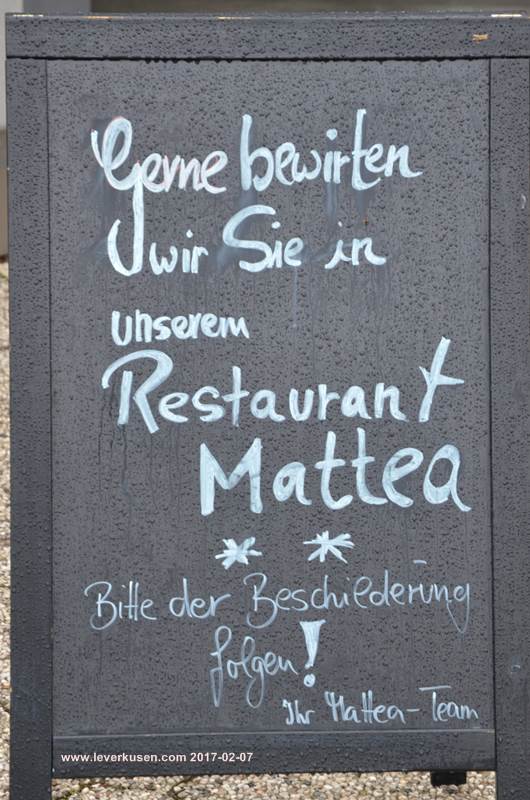 Gerne bewirten
wir Sie in
unserem
Restaurant
Mattea
* *
Bitte der Beschielderung
folgen!
Ihr Mattea-Team
www.leverkusen.com 2017-02-07